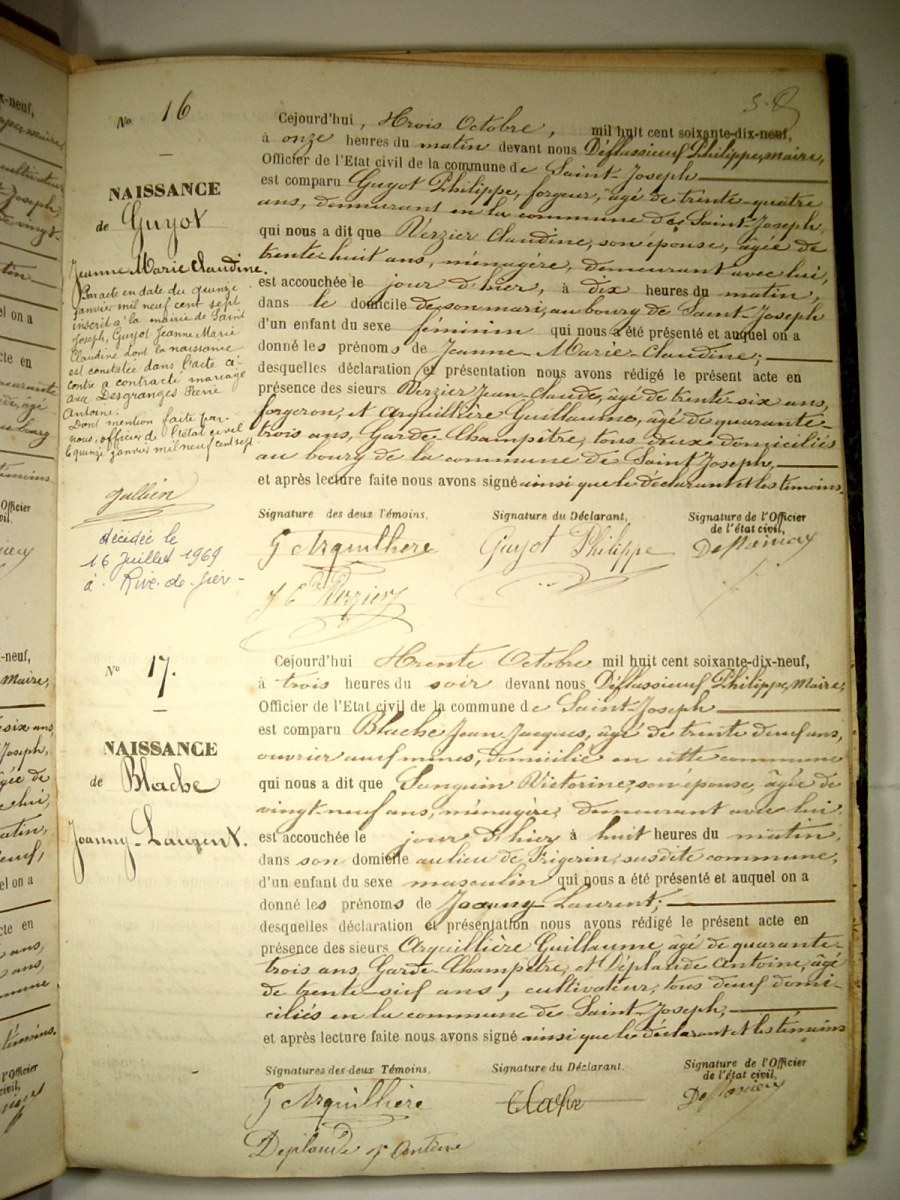 5-8
No 16
NAISSANCE
de Guyot
Jeanne Marie Claudine.
Par acte en date du quinze
janvier mil neuf cent sept
inscrit à la mairie de Saint
Joseph, Guyot Jeanne Marie
Claudine dont la naissance
est constatée dans l'acte ci-
contre a contracté mariage
avec Desgranges Pierre
Antoine.
Dont mention faite par
nous, officier de l'état civil
le quinze janvier mil neuf cent sept
décédée le
16 Juillet 1969
à Rive-de-Gier-
Cejourd'hui, trois Octobre, mil huit cent soixante-dix-neuf,
à onze heures du matin devant nous Déflassieux Philippe, maire,
Officier de l'Etat civil de la commune de Saint-Joseph
est comparu Guyot Philippe, forgeur, âgé de trente-quatre
ans, demeurant en la commune de Saint-Joseph,
qui nous a dit que Verzier Claudine, son épouse, âgée de
trente huit ans, ménagère, demeurant avec lui,
est accouchée le jour d'hier, à dix heures du matin,
dans le domicile de son mari, au bourg de Saint-Joseph
d'un enfant du sexe féminin qui nous a été présenté et auquel on a
donné les prénoms de Jeanne-Marie-Claudine;
desquelles déclaration et présentation nous avons rédigé le présent acte en
présence des sieurs Verzier Jean-Claude, âgé de trente-six ans,
forgeron, et Arquillière Guillaume, âgé de quarante-
trois ans, Garde-Champêtre, tous deux domiciliés
au bourg de la commune de Saint-Joseph,
et après lecture faite nous avons signé ainsi que le déclarant et les témoins.
Signature des deux Témoins, Signature du Déclarant, Signature de l'Officier
de l'état civil,
G Arquillière Guyot Philippe Deflassieux
J C Verzier
No 17.
NAISSANCE
de Blache
Joanny-Laurent.
Cejourd'hui trente Octobre mil huit cent soixante-dix-neuf,
à trois heures du soir devant nous Déflassieux Philippe, Maire,
Officier de l'Etat civil de la commune de Saint-Joseph
est comparu Blache Jean Jacques, âgé de trente deux ans,
ouvrier aux mines, domicilié en cette commune
qui nous a dit que Sanguin Victorine, son épouse, âgée de
vingt-neuf ans, ménagère, demeurant avec lui
est accouchée le jour d'hier à huit heures du matin,
dans son domicile au lieu de Frigerin, susdite commune,
d'un enfant du sexe masculin qui nous a été présenté et auquel on a
donné les prénoms de Joanny-Laurent;
desquelles déclaration et présentation nous avons rédigé le présent acte en
présence des sieurs Arquillière Guillaume, âgé de quarante-
trois ans, Garde-Champêtre, et Déplaude Antoine, âgé
de trente-six ans, cultivateur, tous deux domi-
ciliés en la commune de Saint-Joseph;
et après lecture faite nous avons signé ainsi que le déclarant et les témoins
Signatures des deux Témoins, Signature du Déclarant. Signature de l'Officier
de l'état civil,
G Arquillière Deflassieux
Deplaude Antoine